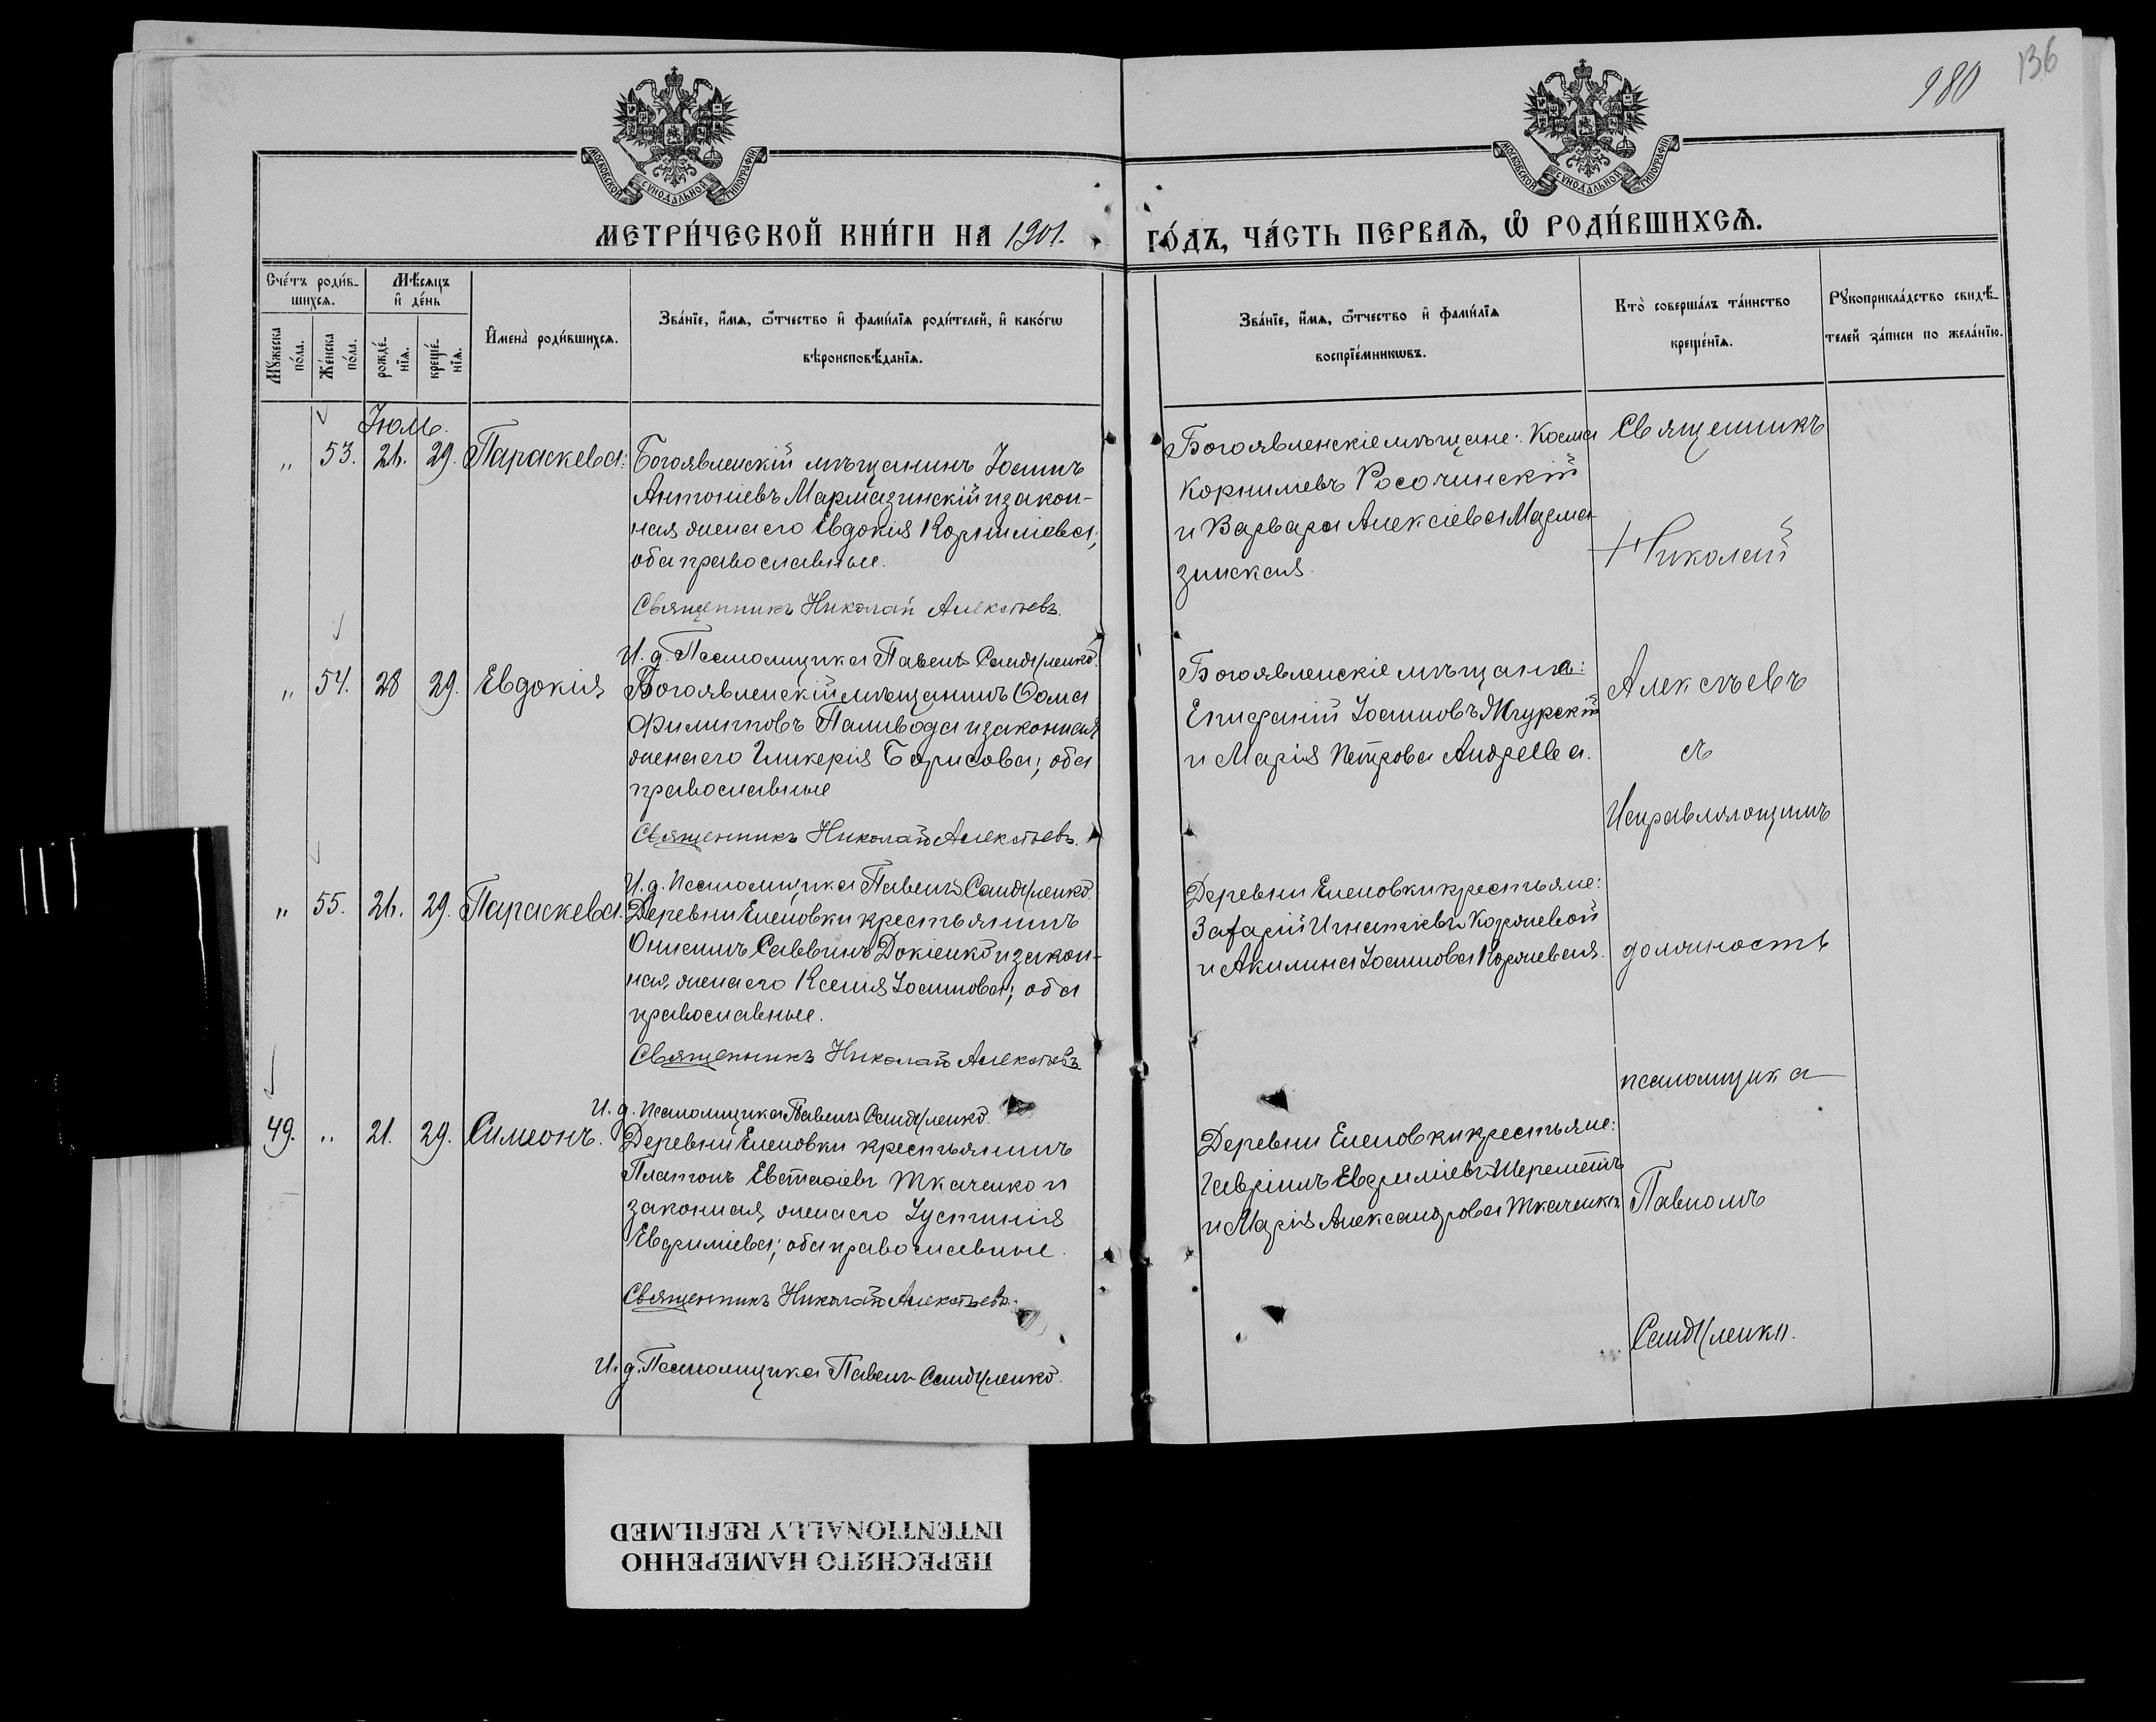 980
136
МОСКОВСКОЙ СѴНОДАЛЬНОЙ ТИПОГРАФІИ
МОСКОВСКОЙ СѴНОДАЛЬНОЙ ТИПОГРАФІИ
МЕТРИ́ЧЕСКОЙ КНИ́ГИ НА 1901.
ГО́ДЪ, ЧА́СТЬ ПЕРВАѦ, Ѽ РОДИ́ВШИХСѦ.
Сче́тъ роди́в-
шихсѧ.
Мѣ́сѧцъ
и҆ де́нь
Мꙋ́жеска
по́ла.
Же́нска
по́ла.
рожде́-
нїѧ.
креще́-
нїѧ.
И҆мена̀ роди́вшихсѧ.
Зва́нїе, и҆́мѧ, ѻ҆́тчество и҆ фами́лїѧ роди́телей, и҆ како́гѡ
вѣроисповѣ́данїѧ.
Зва́нїе, и҆́мѧ, ѻ҆́тчество и҆ фами́лїѧ
воспрїе́мникѡвъ.
Кто̀ соверша́лъ та́инство
креще́нїѧ.
Рꙋкоприкла́дство свидѣ́-
телей за́писи по жела́нїю.
Іюль.
„ 53. 26. 29. Параскева.
Богоявленскій мѣщанинъ Іоаннъ
Антоніевъ Мармазинскій и закон-
ная жена его Евдокія Корниліева;
оба православные.
Священникъ Николай Алексѣевъ.
И. д. Псаломщика Павелъ Сандуленко.
Богоявленскіе мѣщане: Косма
Корниліевъ Росочинскій
и Варвара Алексіева Марма-
зинская.
„ 54. 28 29. Евдокія
Богоявленскій мѣщанинъ Ѳома
Филипповъ Паливода и законная
жена его Гликерія Борисова; оба
православные
Священникъ Николай Алексѣевъ.
И. д. псаломщика Павелъ Сандуленко.
Богоявленскіе мѣщане:
Епифаній Іоанновъ
и Марія Петрова Андреева.
„ 55. 26. 29. Параскева.
Деревни Еленовки крестьянинъ
Онисимъ Саввинъ Докіенко и закон-
ная жена его Ксенія Іоаннова; оба
православные.
Священникъ Николай Алексѣевъ
И. д. псаломщика Павелъ Сандуленко.
Деревни Еленовки крестьяне:
Захарій Игнатіевъ Коржевой
и Акилина Іоаннова Коржевая.
49. „ 21. 29. Симеонъ.
Деревни Еленовки крестьянинъ
Платонъ Евстафіевъ Ткаченко и
законная жена его Іустинія
Евфиміева; оба православные.
Священникъ Николай Алексѣевъ.
И. д. Псаломщика Павелъ Сандуленко.
Деревни Еленовки крестьяне:
Гавріилъ Евфиміевъ Шереметъ
и Марія Александрова Ткаченко
Священникъ
Николай
Алексѣевъ
съ
Исправляющимъ
должность
псаломщика
Павломъ
Сандуленко.
ПЕРЕСНЯТО НАМЕРЕННО
INTENTIONALLY REFILMED